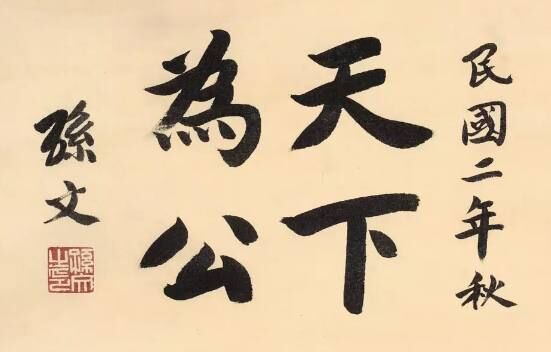 民國二年秋
天下
為公
孫文
孫文之印